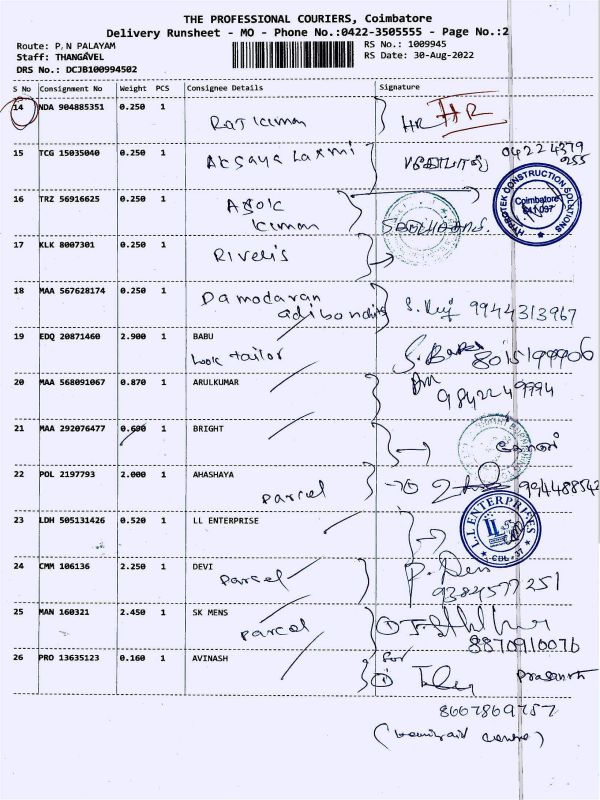 THE PROFESSIONAL COURIERS, Coimbatore
Delivery Runsheet - MO - Phone No.:0422-3505555 - Page No.:2
Route: P,N PALAYAM
RS No.: 1009945
Staff: THANGAVEL
RS Date: 30-Aug-2022
DRS No.: DCJB100994502
S No Consignment No Weight PCS Consignee Details Signature
14 NDA 904885351 0.250 1
Raj Kumar HR HR
15 TCG 15035040 0.250 1
Aksaya Laxmi 04224379
955
16 TRZ 56916625 0.250 1
Asok
Kumar
HYBROTEK CONSTRUCTION SOLUTIONS
Coimbatore
641 037
17 KLK 8007301 0.250 1
Rivelis
18 MAA 567628174 0.250 1
Damodaran
9944313967
19 EDQ 20871460 2.900 1 BABU
Look tailor S. Babu 8015199906
20 MAA 568091067 0.870 1 ARULKUMAR
9842249994
21 MAA 292076477 0.600 1 BRIGHT
22 POL 2197793 2.000 1 AHASHAYA
parcel
23 LDH 505131426 0.520 1 LL ENTERPRISE
L.L ENTERPRISES
LL
CBE - 37
24 CMM 106136 2.250 1 DEVI
parcel P. Devi
9384577251
25 MAN 160321 2.450 1 SK MENS
parcel
8870910076
26 PRO 13635123 0.160 1 AVINASH
for
Prasanth
8667869757